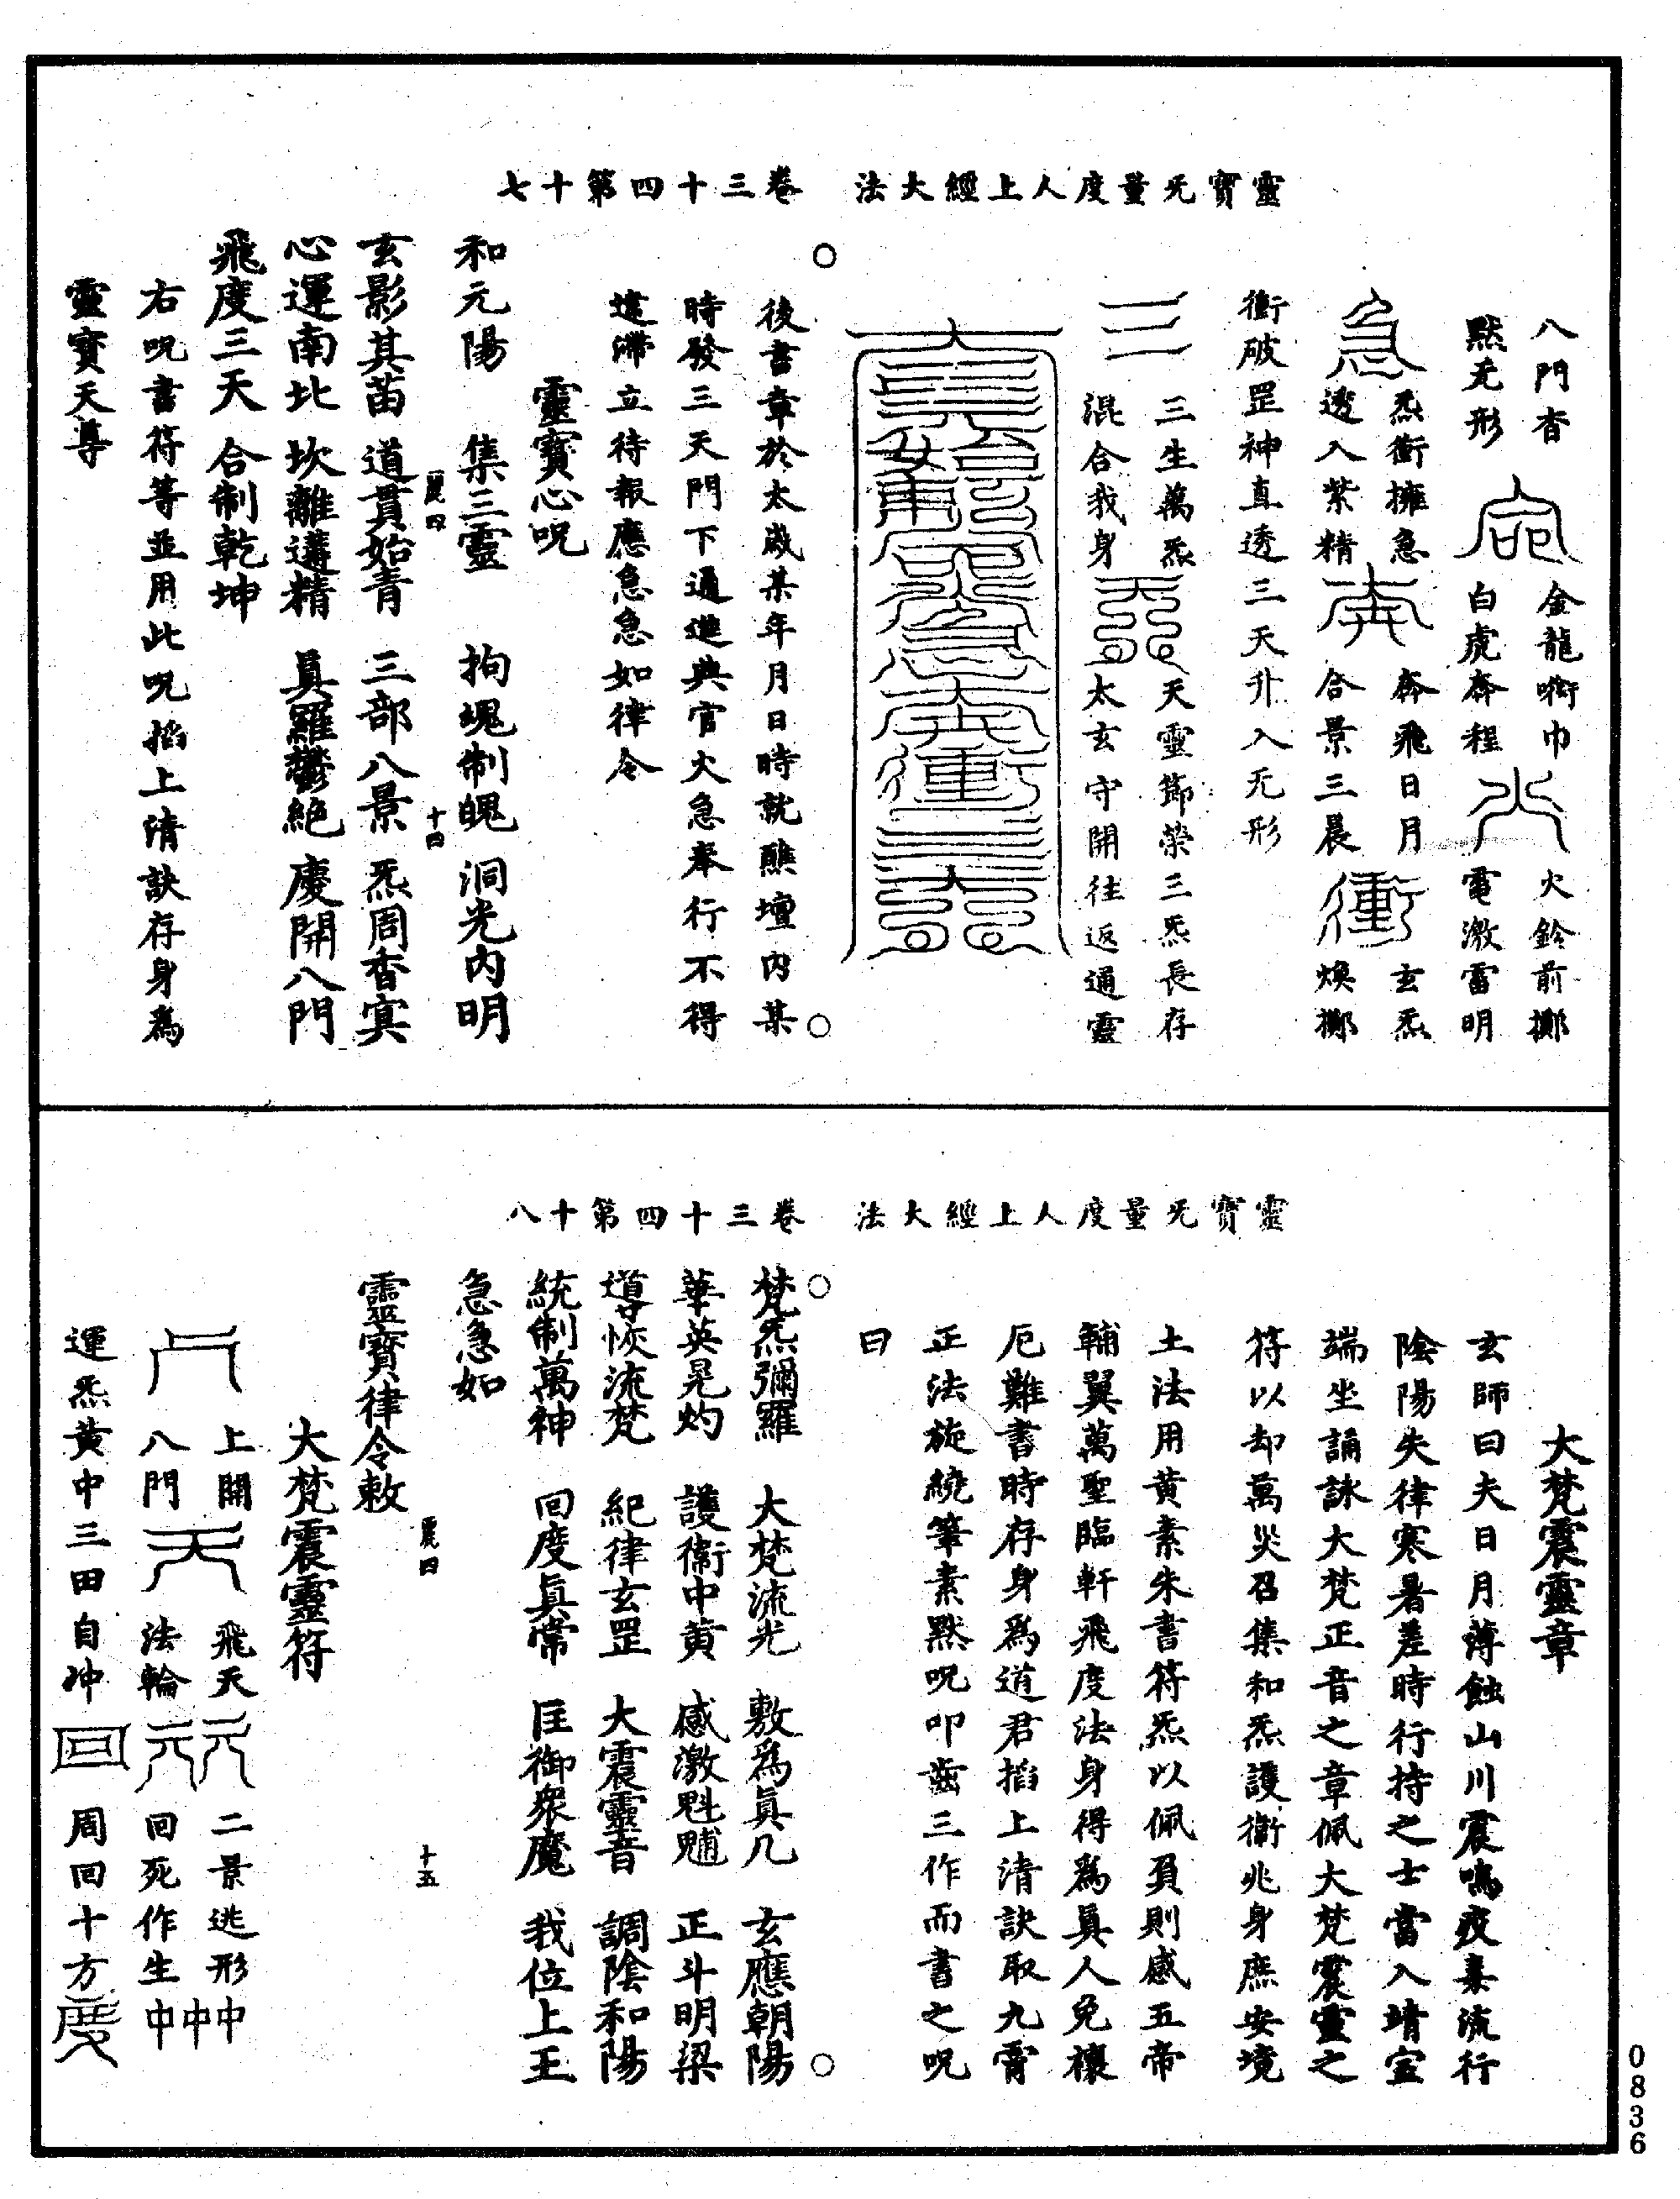 靈寶无量度人上經大法　卷三十四第十七
八門杳　金龍嘶巾　火鈴前擲
默无形　白虎奔程　電激雷明
炁衝擁急　奔飛日月　玄炁
透入紫精　合景三晨　煥擲
衝破罡神直透三天升入无形
三生萬炁　天靈節榮三炁長存
混合我身　太玄守開往返通靈
後書章於太歲某年月日時就醮壇内某
時發三天門下通進典官火急奉行不得
違滯立待報應急急如律令
靈寶心呪
和元陽　集三靈　拘魂制魄　洞光内明
玄影其苗　道貫始青　三部八景　炁周杳冥
心運南北　坎離遘精　眞羅鬱絶　慶開八門
飛度三天　合制乾坤
右呪書符等並用此呪掐上清訣存身爲
靈寶天尊
十四
靈寶无量度人上經大法　卷三十四第十八
大梵震靈章
玄師曰夫日月薄蝕山川震鳴疫毒流行
陰陽失律寒暑差時行持之士當入靖室
端坐誦詠大梵正音之章佩大梵震靈之
符以却萬災召集和炁護衛兆身庶安境
土法用黄素朱書符炁以佩頁則感五帝
輔翼萬聖臨軒飛度法身得爲眞人免禳
厄難書時存身爲道君掐上清訣取九霄
正法旋繞筆素默呪叩齒三作而書之呪
曰
梵炁彌羅　大梵流光　敷爲眞几　玄應朝陽
華英晃灼　護衛中黄　感激魁魒　正斗明梁
導恢流梵　紀律玄罡　大震靈音　調陰和陽
統制萬神　回度眞常　匡御衆魔　我位上王
急急如
靈寶律令敕
十五
大梵震靈符
上開　飛天　二景逃形
八門　法輪　回死作生
運炁黄中三田自冲　周回十方
0836